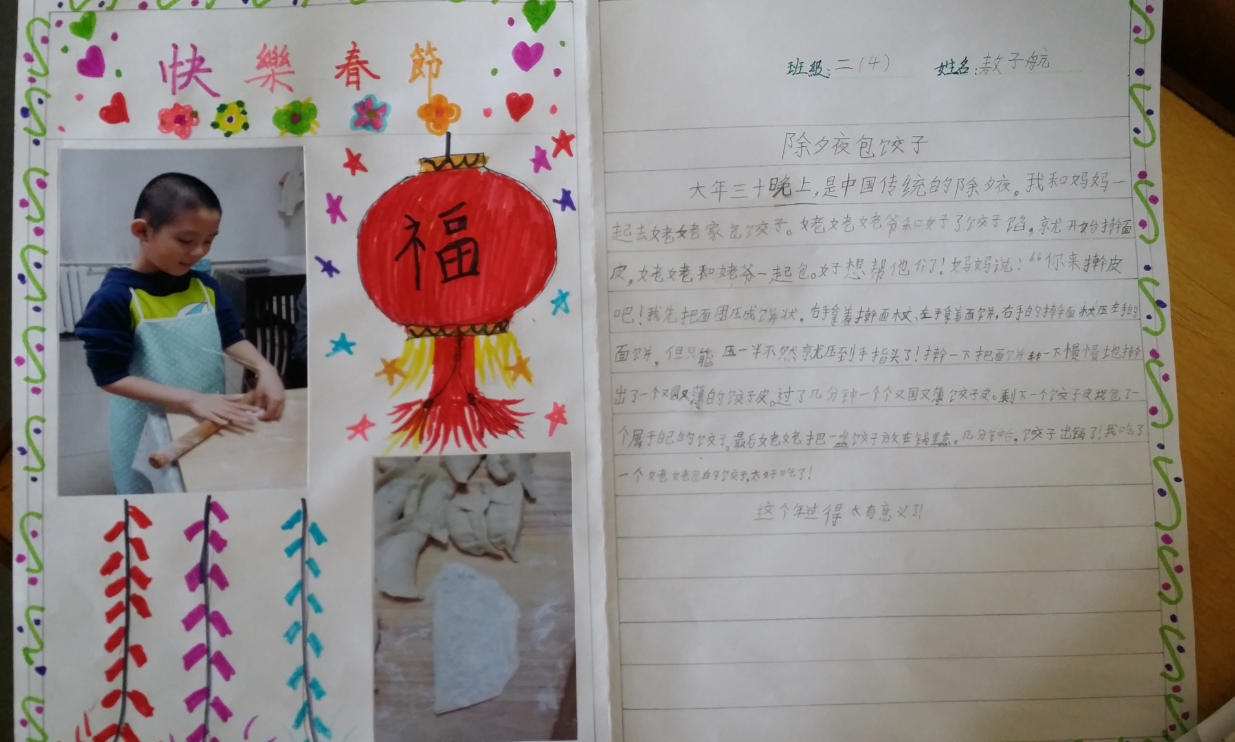 快樂春節
福
班级:二(4) 姓名:敖子航
除夕夜包饺子
大年三十晚上,是中国传统的除夕夜。我和妈妈一
起去姥姥家包饺子。姥姥姥爷和好了饺子馅,就开始擀面
皮,姥姥和姥爷一起包。好想帮他们!妈妈说:“你来擀皮
吧!我先把面团压成饼状。右手拿着擀面杖、左手拿着面饼,右手的擀面杖压左手的
面饼,但只能压一半不然就压到手指头了!擀一下把面饼转一下慢慢地擀
出了一个又圆又薄的饺子皮。过了几分钟一个个又圆又薄饺子皮。剩下一个饺子皮我包了一
个属于自己的饺子。最后姥姥把一盘饺子放在锅里煮。几分钟后。饺子出锅了!我吃了
一个姥姥包的饺子,太好吃了!
这个年过得太有意义了!